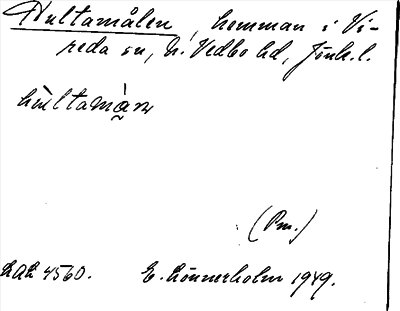 Hultamålen, hemman i Vi-
reda sn, N. Vedbo hd, Jönk. l.
(Pm.)
LAL 4560. E. Lönnerholm 1949.